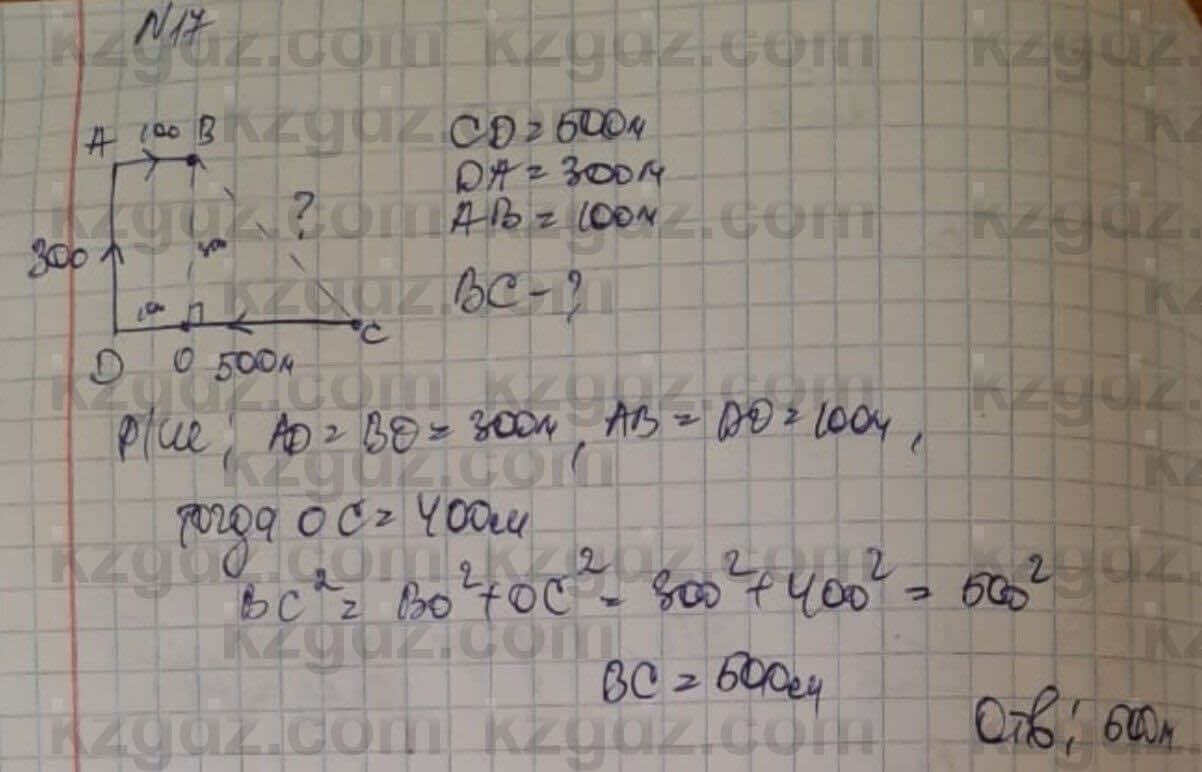 N17
A 100 B
CD = 500м
DA = 300м
AB = 100м
?
300
BC - ?
D O 500м C
р/ие; AD = BO = 300м, AB = DO = 100м,
тогда OC = 400м
BC² = BO² + OC² = 300² + 400² = 500²
BC = 500м
Отв; 500м
kzgdz.com